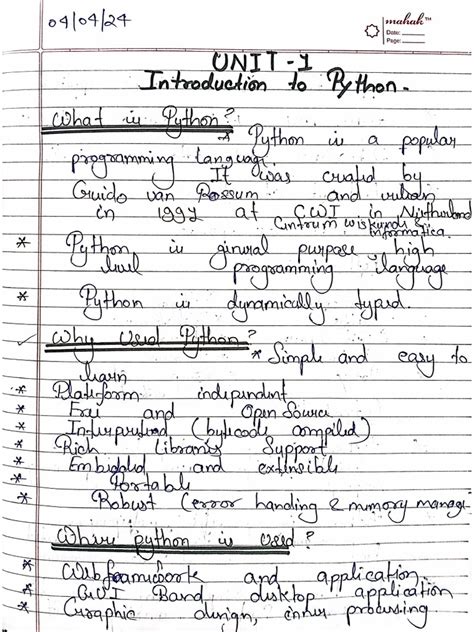 04/04/24
mahak™
Date:
Page:
UNIT-1
Introduction to Python.
What is Python?
* Python is a popular
programming language
It was created by
Guido van Rossum and
in 199 at CWI in
Centrum wiskunde &
Informatica
* Python is general purpose high
level programming language
* Python is dynamically typed.
Why Used Python?
* Simple and easy to
learn
* Plateform independent
* Free and Open Source
* Interpreted (bytecode compiled)
* Rich Libraries Support
* Embedded and extensible
* Portable
* Robust (error handling & memory manage
Where python is used?
* Webframework and application
* GUI Band desktop application
* Graphic design, processing